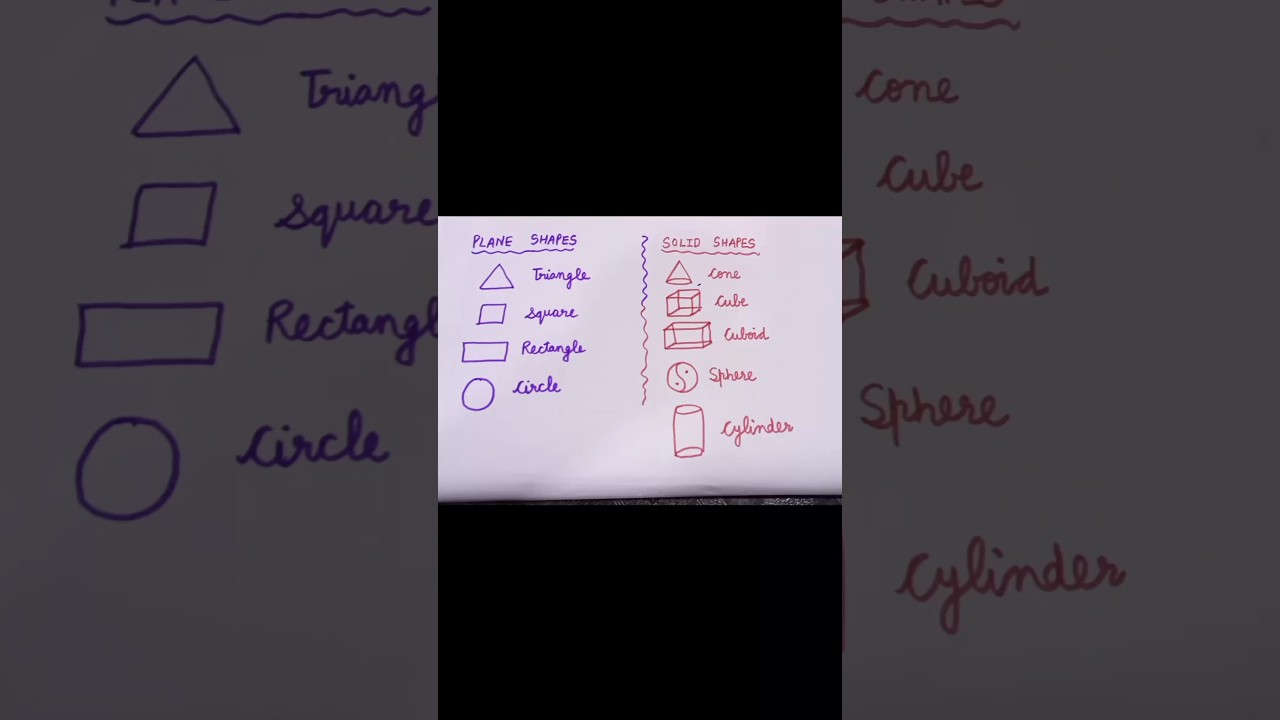 PLANE SHAPES
Triangle
Square
Rectangle
Circle
SOLID SHAPES
Cone
Cube
Cuboid
Sphere
Cylinder